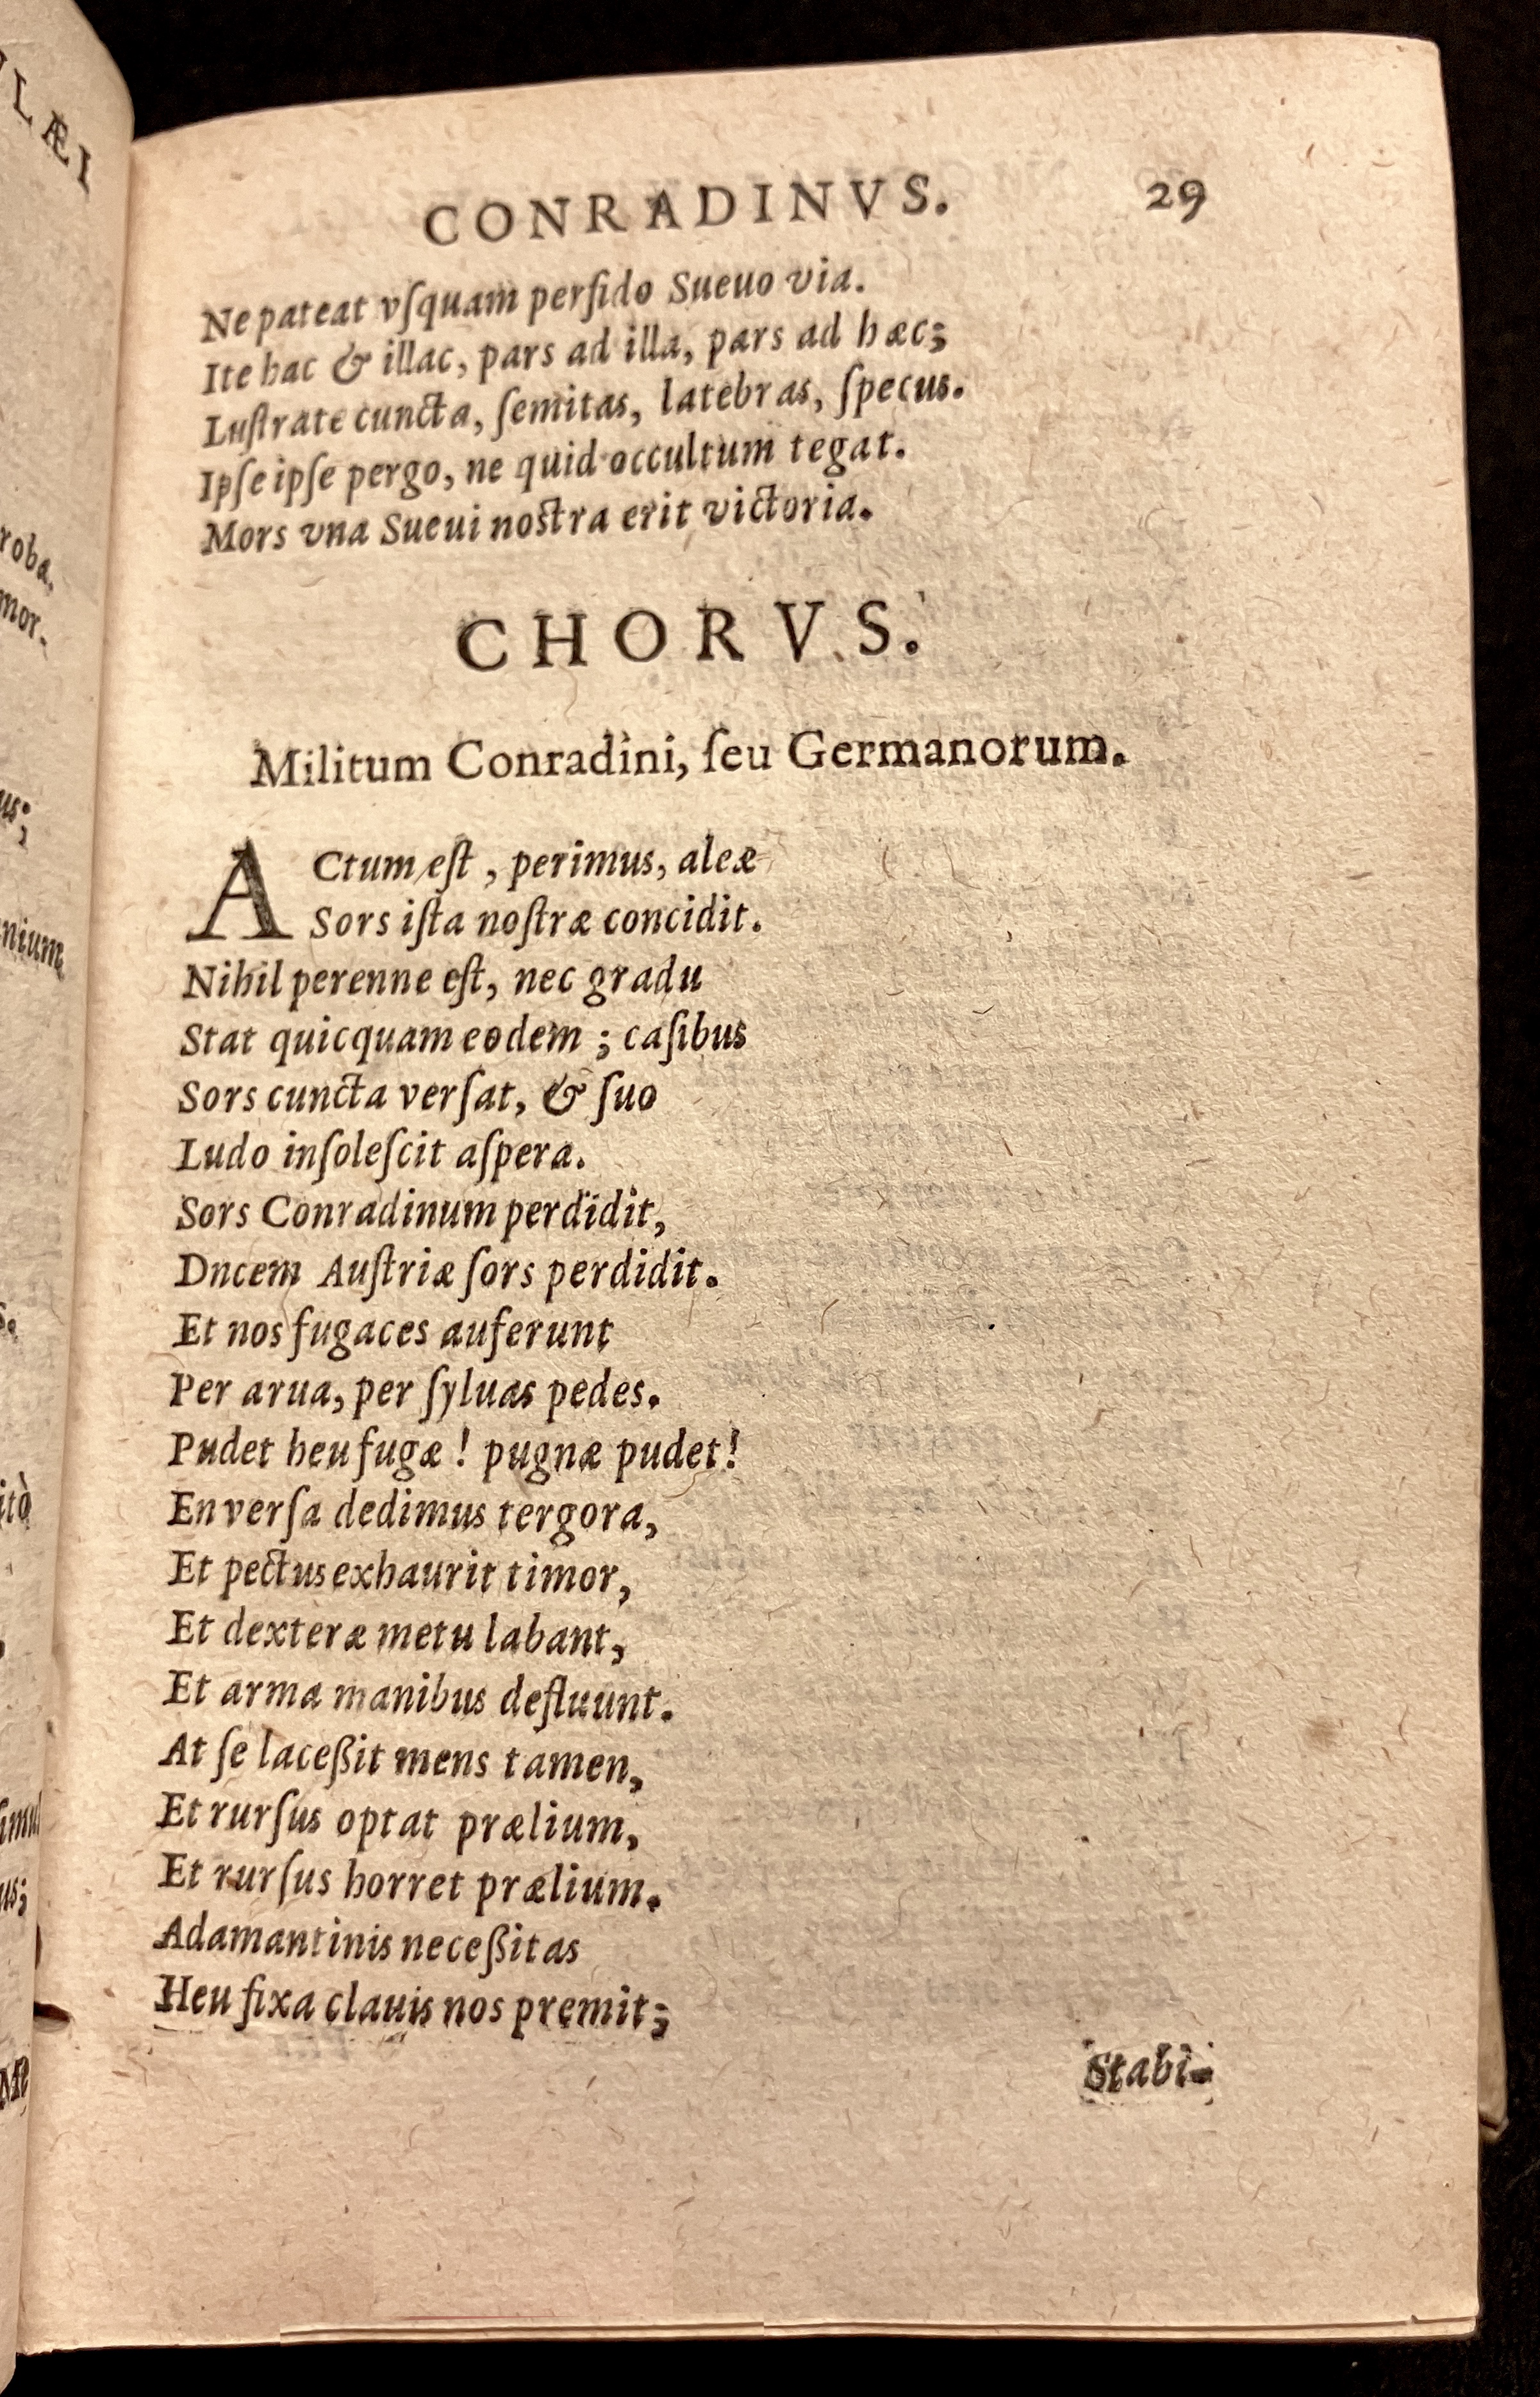 LÆI
roba.
mor-
us;
nium
s.
itò
simul
us;
Me
CONRADINVS. 29
Ne pateat vſquam perfido Sueuo via.
Ite hac & illac, pars ad illa, pars ad hæc;
Luſtrate cuncta, ſemitas, latebras, ſpecus.
Ipſe ipſe pergo, ne quid occultum tegat.
Mors vna Sueui nostra erit victoria.
CHORVS.
Militum Conradini, ſeu Germanorum.
ACtum eſt, perimus, aleæ
Sors iſta noſtræ concidit.
Nihil perenne eſt, nec gradu
Stat quicquam eodem; caſibus
Sors cuncta verſat, & ſuo
Ludo inſoleſcit aſpera.
Sors Conradinum perdidit,
Dncem Auſtriæ ſors perdidit.
Et nos fugaces auferunt
Per arua, per ſyluas pedes.
Pudet heu fugæ! pugnæ pudet!
En verſa dedimus tergora,
Et pectus exhaurit timor,
Et dexteræ metu labant,
Et arma manibus defluunt.
At ſe laceßit mens tamen,
Et rurſus optat prælium,
Et rurſus horret prælium.
Adamantinis neceßitas
Heu fixa clauis nos premit;
Stabi-